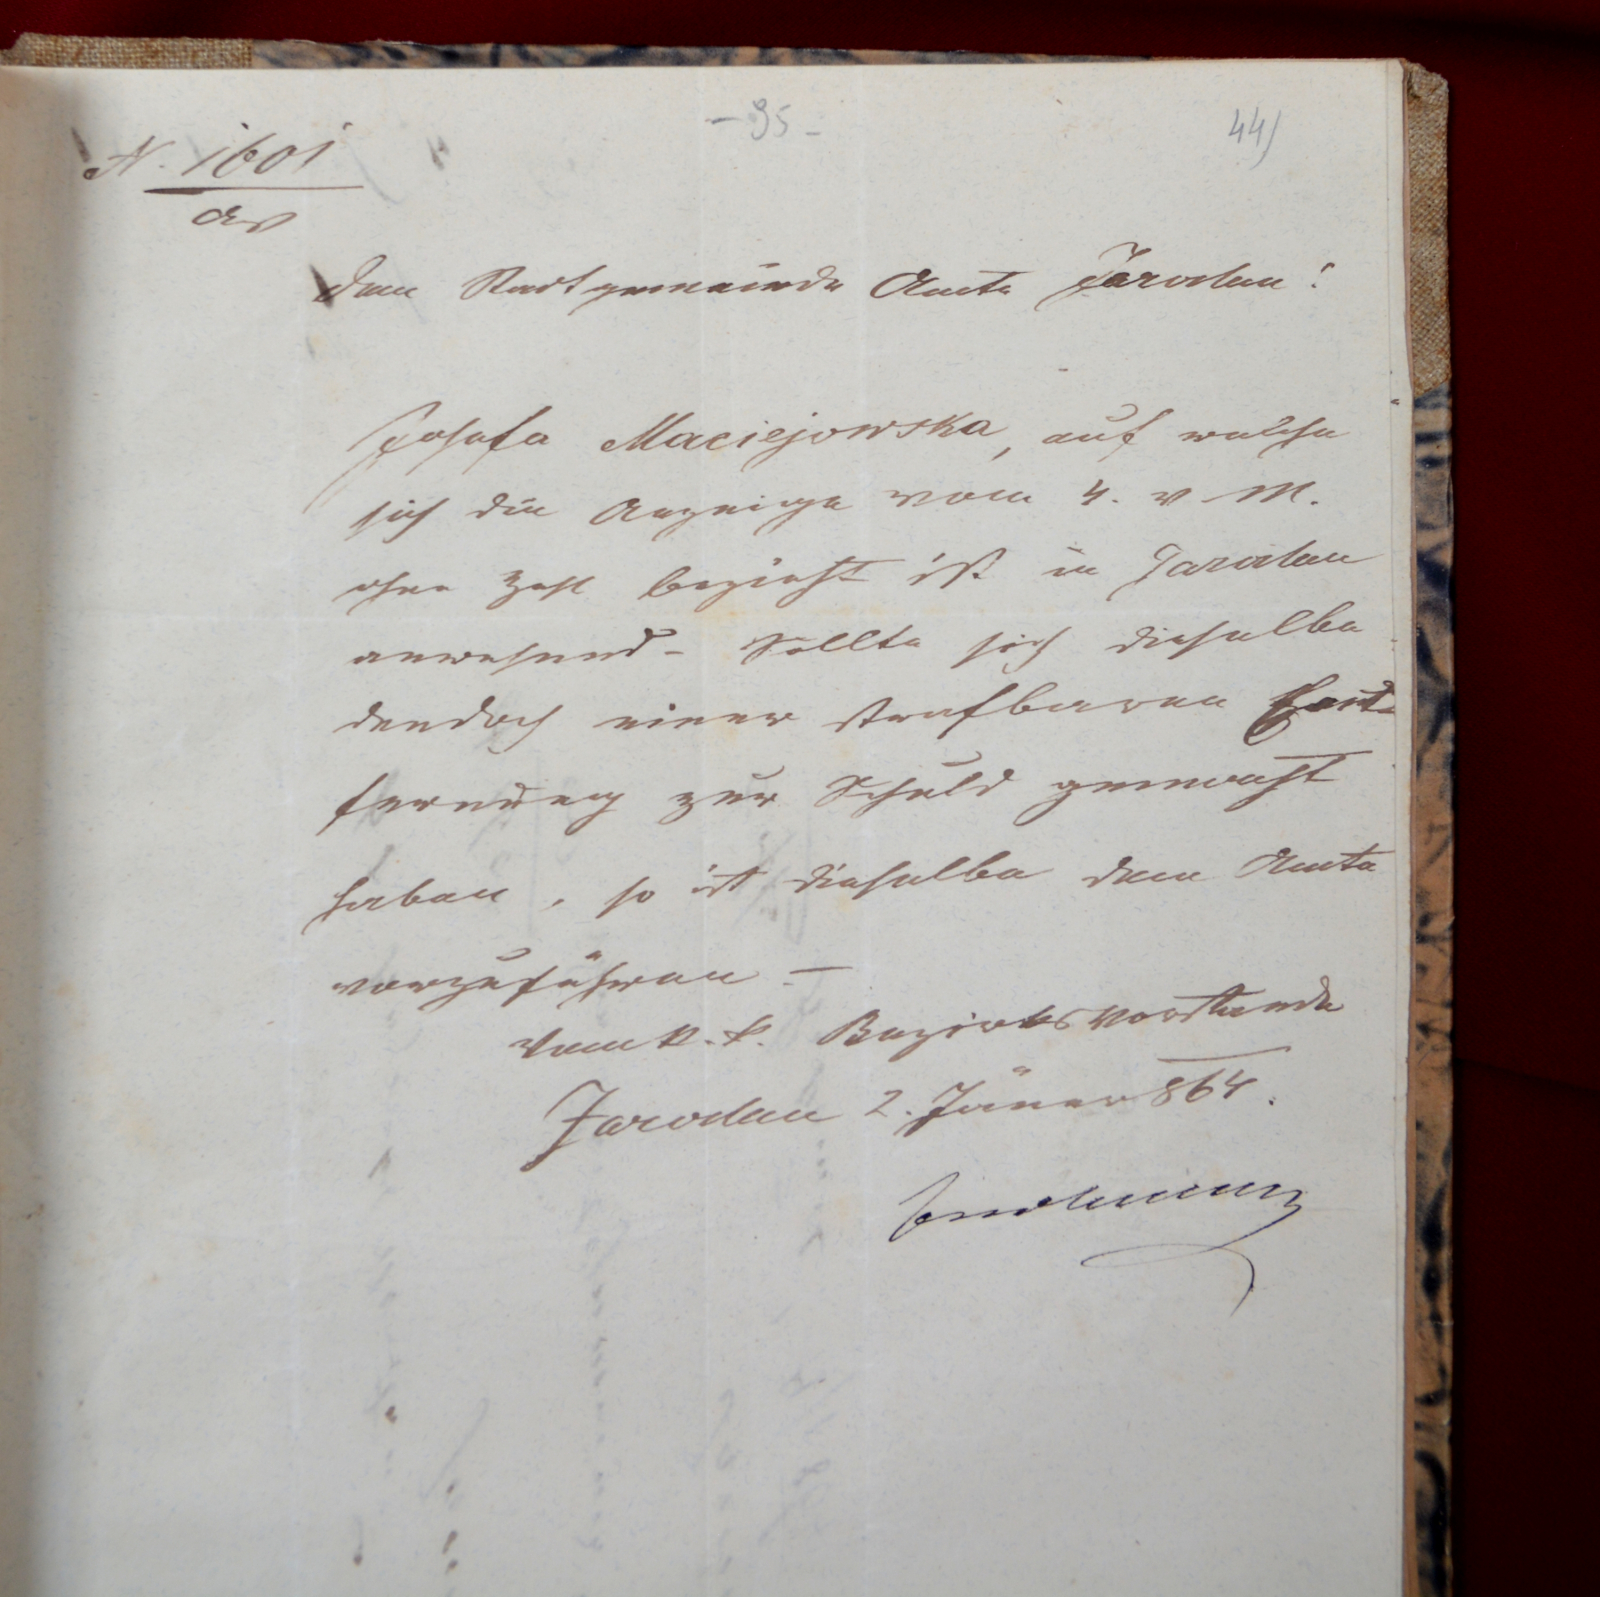 - 95 -
44)
N. 1601
Dem Stadtgemeinde Amte Jaroslau!
Josefa Maciejowska, auf welche
sich die Anzeige vom 4. v M.
ohne Zahl bezieht ist in Jaroslau
anwesend - Sollte sich dieselbe
dendoch einer strafbaren Ent-
fernung zur Schuld gemacht
haben, so ist dieselbe dem Amte
vorzuführen -
Vom k. k. Bezirksvorstande
Jaroslau 2. Jäner 864.